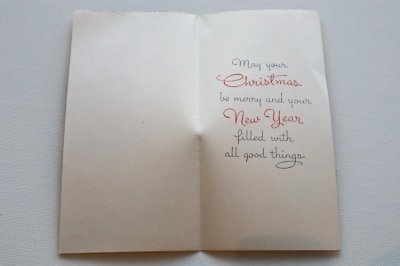 May your
Christmas
be merry and your
New Year
filled with
all good things